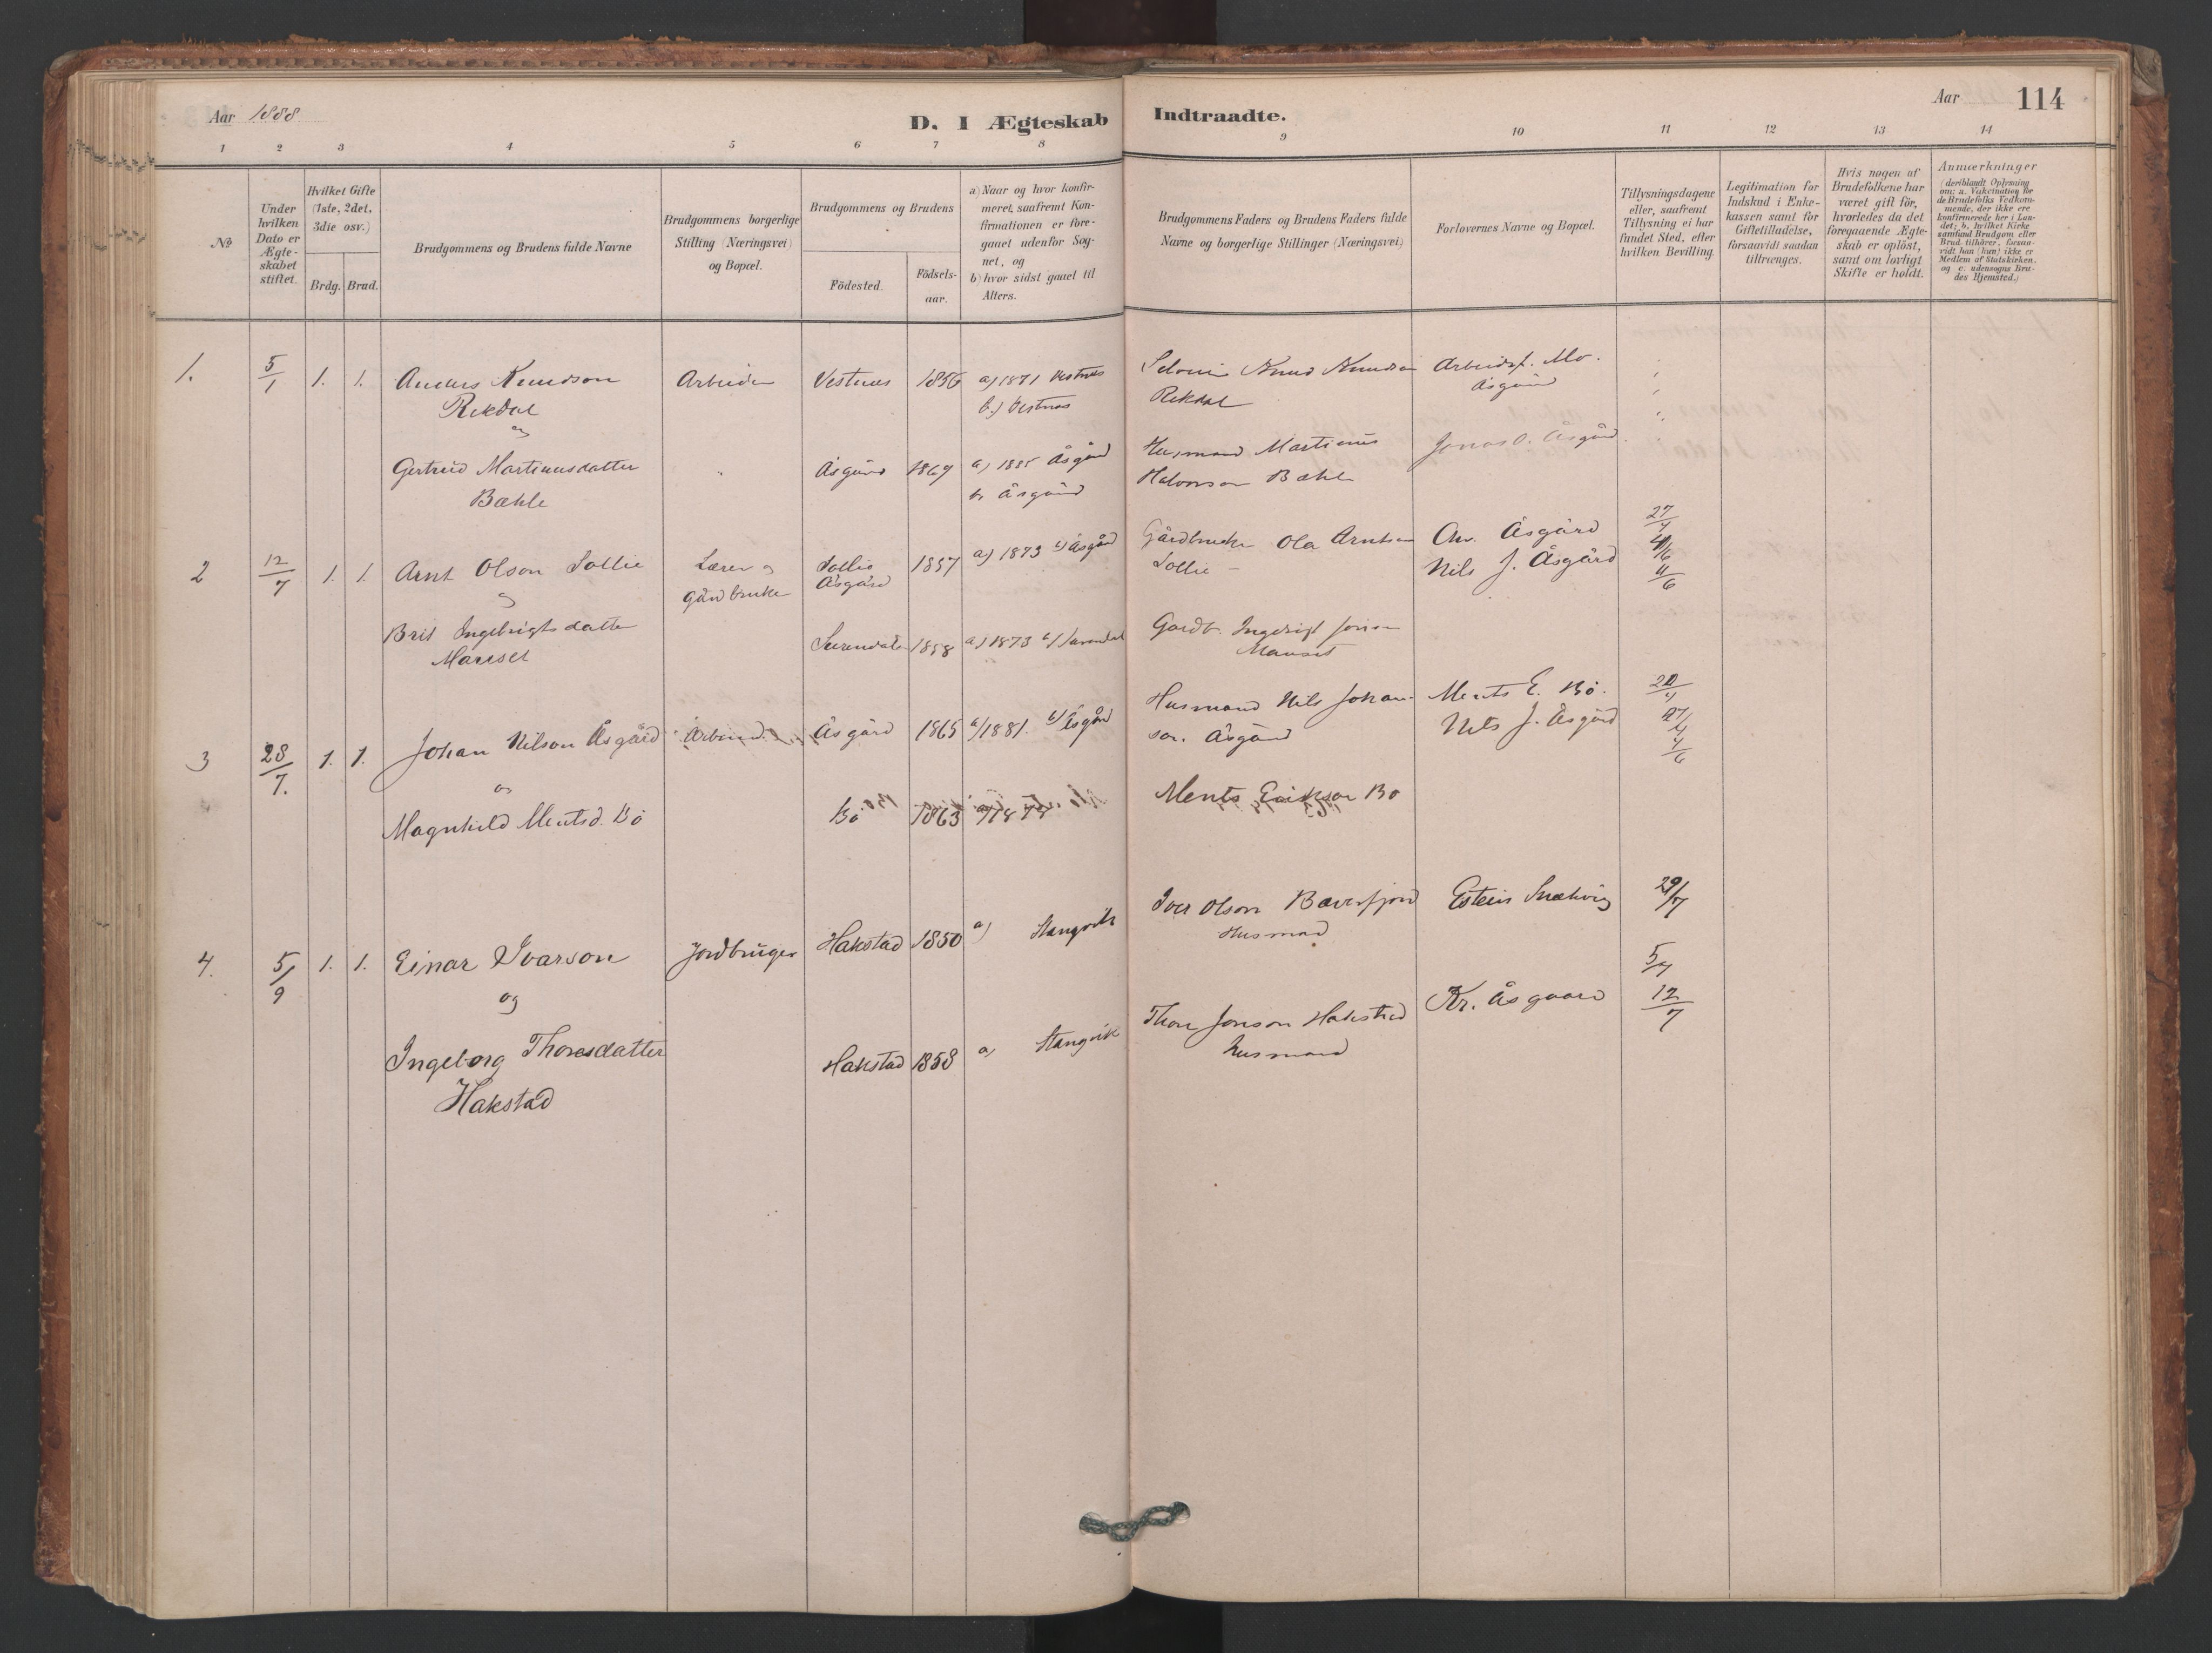 Aar 1888.
D. I Ægteskab Indtraadte.
Aar 114
1 2 3 4 5 6 7 8 9 10 11 12 13 14
No
Under hvilken Dato er Ægte-skabet stiftet.
Hvilket Gifte (1ste, 2det, 3die osv.)
Brdg. Brud.
Brudgommens og Brudens fulde Navne
Brudgommens borgerlige Stilling (Næringsvei) og Bopæl.
Brudgommens og Brudens
Födested. Födsels-aar.
a) Naar og hvor konfir-meret, saafremt Kon-firmationen er fore-gaaet udenfor Sog-net, og
b) hvor sidst gaaet til Alters.
Brudgommens Faders og Brudens Faders fulde Navne og borgerlige Stillinger (Næringsvei)
Forlovernes Navne og Bopæl.
Tillysningsdagene eller, saafremt Tillysning ei har fundet Sted, efter hvilken Bevilling.
Legitimation for Indskud i Enke-kassen samt for Giftetilladelse, forsaavidt saadan tiltrænges.
Hvis nogen af Brudefolkene har været gift för, hvorledes da det foregaaende Ægte-skab er oplöst, samt om lovligt Skifte er holdt.
Anmærkninger (deriblandt Oplysning om: a. Vakcination for de Brudefolks Vedkom-mende, der ikke ere konfirmerede her i Lan-det; b. hvilket Kirke-samfund Brudgom eller Brud tilhörer, forsaa-vidt han (hun) ikke er Medlem af Statskirken, og c. udensogns Bru-des Hjemsted.)
1. 5/1 1. 1. Anders Knudson Arbeider Vestnes 1856 a) 1871 Vestnes Knud Knudson Arbeidsf. Mo.
Rekdal b.) Vestnes Rekdal Åsgård
og
Gertrud Martinusdatter Åsgård 1869 a) 1885 Åsgård Husmand Martinus Jonas O. Åsgård.
Bæhle b. Åsgård Halvorson Bæhle
2 12/7 1. 1. Arnt Olson Sollie Lærer og Sollie 1857 a) 1873 b) Åsgård Gårdbruker Ola Arntsen Chr. Åsgård 27/4
Gårdbruker Åsgård Sollie Nils J. Åsgård 11/6
og
Brit Ingebrigtsdatter Surendalen 1858 a) 1873 b) Surendal Gardb. Ingebrigt Jonson
Mauset Mauset
3 28/7. 1. 1. Johan Nilson Åsgård Arbeid. Åsgård 1865 a/1881. b) Åsgård Husmand Nils Johan- Ments E. Bö.
son. Åsgård Nils J. Åsgård 4/6
og
Magnhild Mentsd. Bö Bö 1863 a) 1878 Ments Erikson Bö
4. 5/9 1. 1. Einar Ivarson Jordbruger Hakstad 1850 a) Stangvik Iver Olson Bæverfjord Estein Snekvig 29/7
Husmand
og 5/7
Ingeborg Thoresdatter Hakstad 1858 a) Stangvik Thore Jonson Hakstad Kr. Åsgaard 12/7
Hakstad husmand